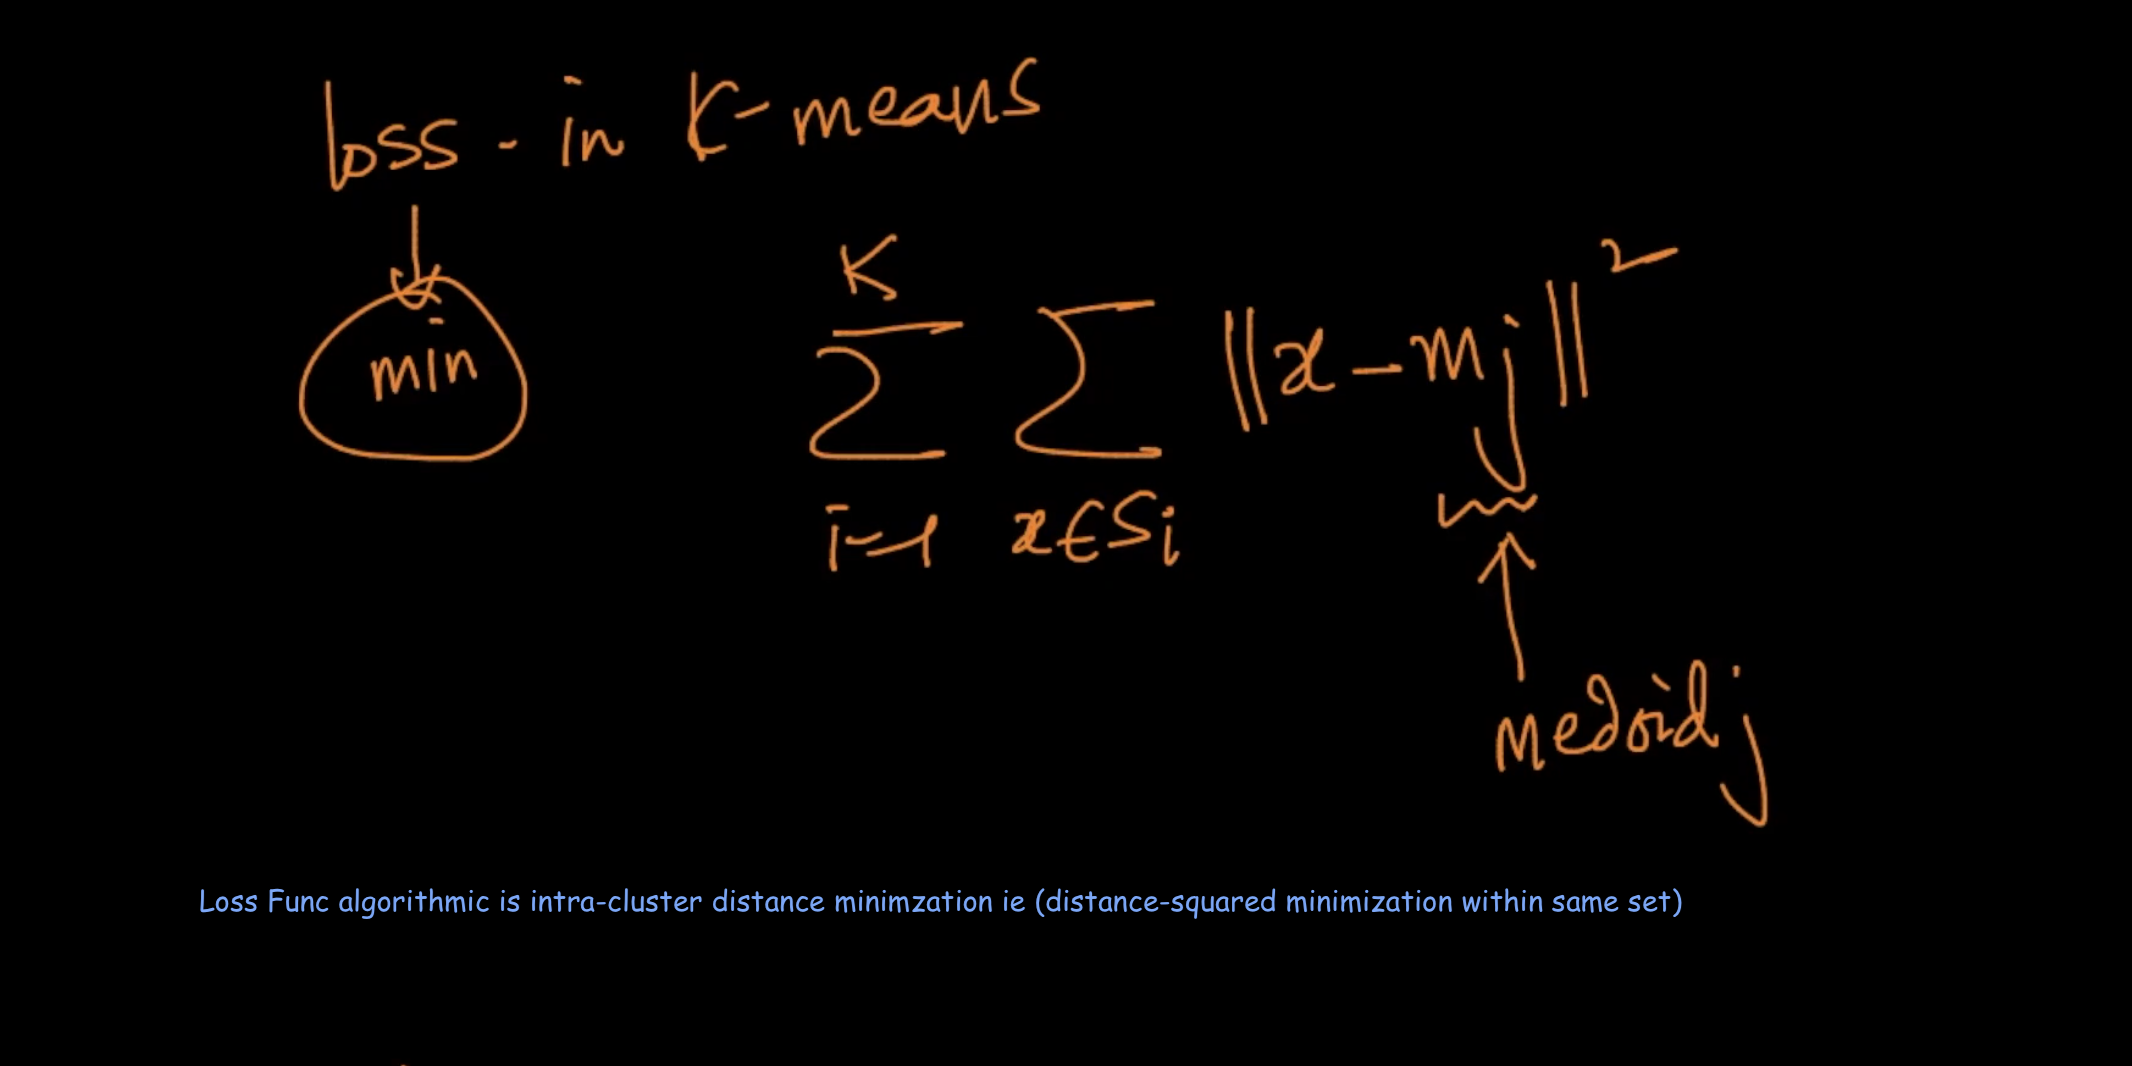 loss - in K-means
min
K
∑ ∑ ||x - mj||²
i=1 x∈Si
medoid j
Loss Func algorithmic is intra-cluster distance minimzation ie (distance-squared minimization within same set)